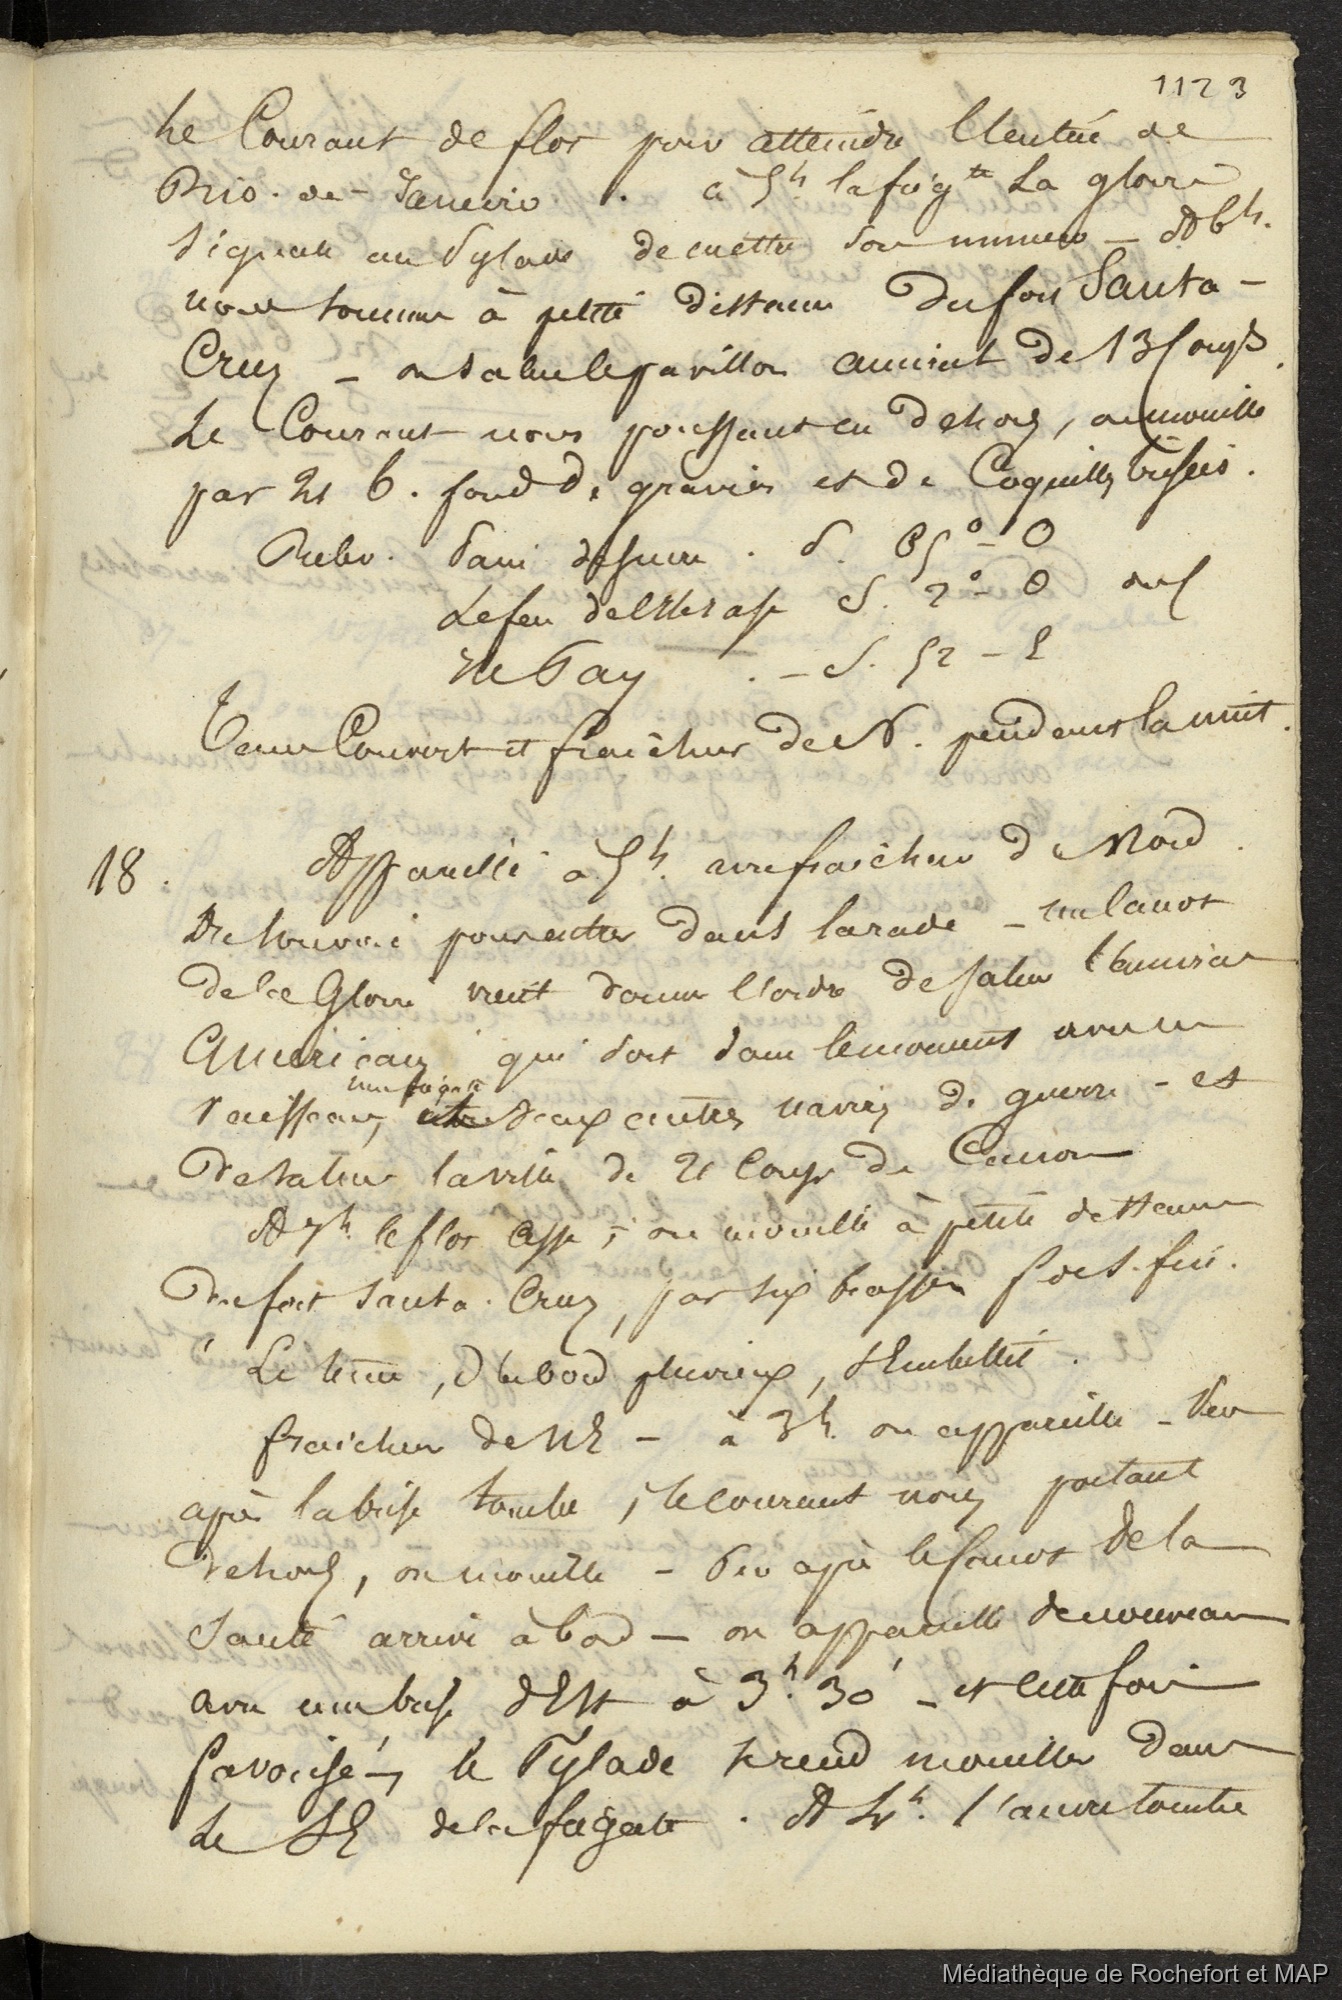 1123
le Courant de flot pour atteindre l'entrée de
Rio-de-Janeiro. à 5h la frég.te La gloire
signale au Pylade de mettre son numero - A 6h.
nous sommes à petite distance du fort Santa-
Cruz - on salue le pavillon amiral de 13 Coups.
Le Courant nous poussant en dehors, on mouille
par 21 b. fond de gravier et de Coquilles brisées.
Relev. Pain de sucre . S. 85° - O
Le feu de l'Ile rase S. 2° - O
Ile Pay . - S. 52 - E
Tems Couvert et fraîcheur de N. pendant la nuit.
18. Appareillé à 5h. avec fraîcheur de Nord
pour entrer dans la rade - un canot
de la Gloire vient donner l'ordre de saluer l'amiral
Américain qui sort dans le moment avec un
vaisseau, une frégate deux autres navires de guerre - et
de saluer la ville de 21 Coups de Canon
A 7h. le flot cesse ; on mouille à petite distance
du fort Santa-Cruz, par six brasses f. de S. fin.
Le tems, d'abord pluvieux, s'embellit.
fraîcheur de NE - à 3h. on appareille - Peu
après la brise tombe, le courant nous portant
dehors, on mouille - Peu après le Canot de la
Santé arrive à bord - on appareille de nouveau
avec une brise d'Est à 3h. 30' - et cette fois
favorisé, le Pylade se rend mouiller dans
le SE de la frégate. A 4h. l'ancre tombe
Médiathèque de Rochefort et MAP